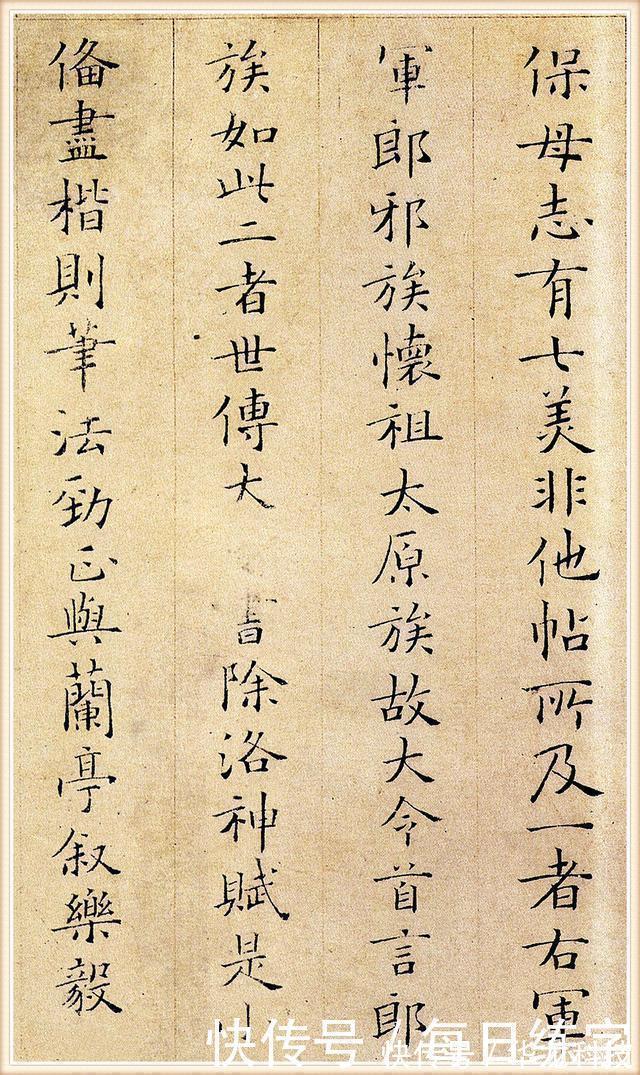 保母志有七美非他帖所及一者右軍
軍郎邪族懷祖太原族故大令首言郎
族如此二者世傳大書除洛神賦是小
俻盡楷則筆法勁正與蘭亭叙樂毅
快传号/每日练字